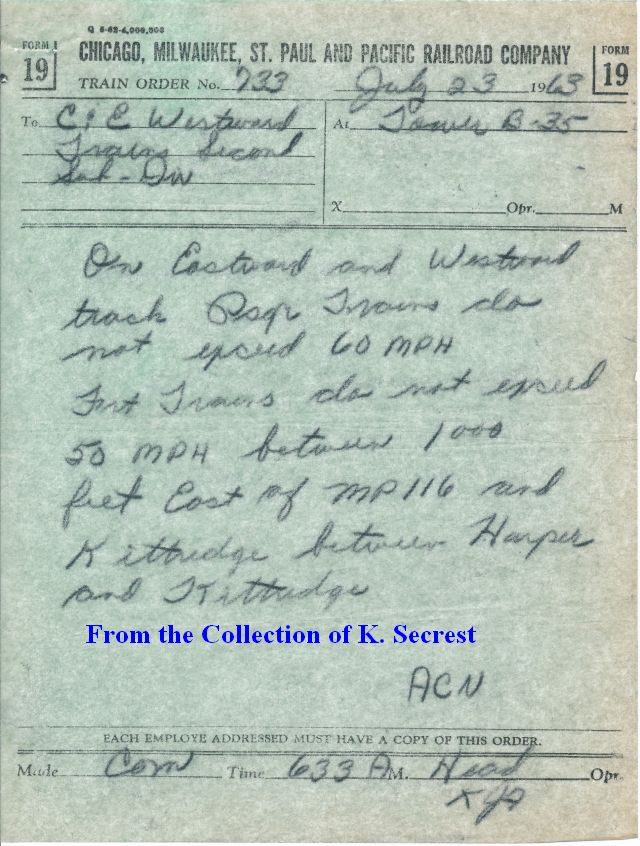 Q 5-62-4,000,000
FORM FORM
19 CHICAGO, MILWAUKEE, ST. PAUL AND PACIFIC RAILROAD COMPANY 19
TRAIN ORDER No. 733 July 23 1963
To C & E Westward At Tower B-35
Trains Second
Sub-Div
X Opr. M
On Eastward and Westward
track Psgr Trains do
not exceed 60 MPH
Frt Trains do not exceed
50 MPH between 1000
feet East of MP116 and
Kittredge between Harper
and Kittredge
From the Collection of K. Secrest
ACN
EACH EMPLOYE ADDRESSED MUST HAVE A COPY OF THIS ORDER.
Made Com Time 633 A M. Head Opr.